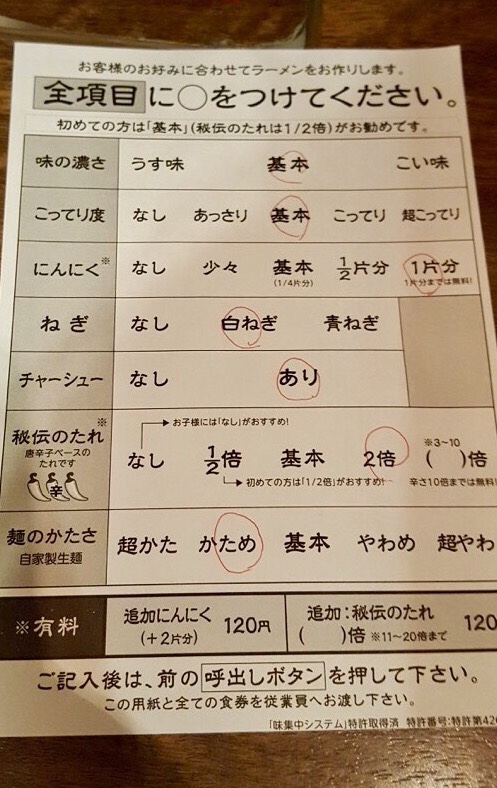 お客様のお好みに合わせてラーメンをお作りします。
全項目に○をつけてください。
初めての方は「基本」(秘伝のたれは1/2倍)がお勧めです。
味の濃さ うす味 基本 こい味
こってり度 なし あっさり 基本 こってり 超こってり
にんにく※ なし 少々 基本 1/2片分 1片分
(1/4片分) 1片分までは無料!
ねぎ なし 白ねぎ 青ねぎ
チャーシュー なし あり
お子様には「なし」がおすすめ!
秘伝のたれ※ なし 1/2倍 基本 2倍 ※3~10 ( )倍
唐辛子ベースの
たれです
辛 初めての方は「1/2倍」がおすすめ! 辛さ10倍までは無料!
麺のかたさ 超かた かため 基本 やわめ 超やわ
自家製生麺
※有料 追加にんにく (+2片分) 120円 追加:秘伝のたれ ( )倍 ※11~20倍まで 120
ご記入後は、前の呼出しボタンを押して下さい。
この用紙と全ての食券を従業員へお渡し下さい。
「味集中システム」特許取得済 特許番号:特許第42